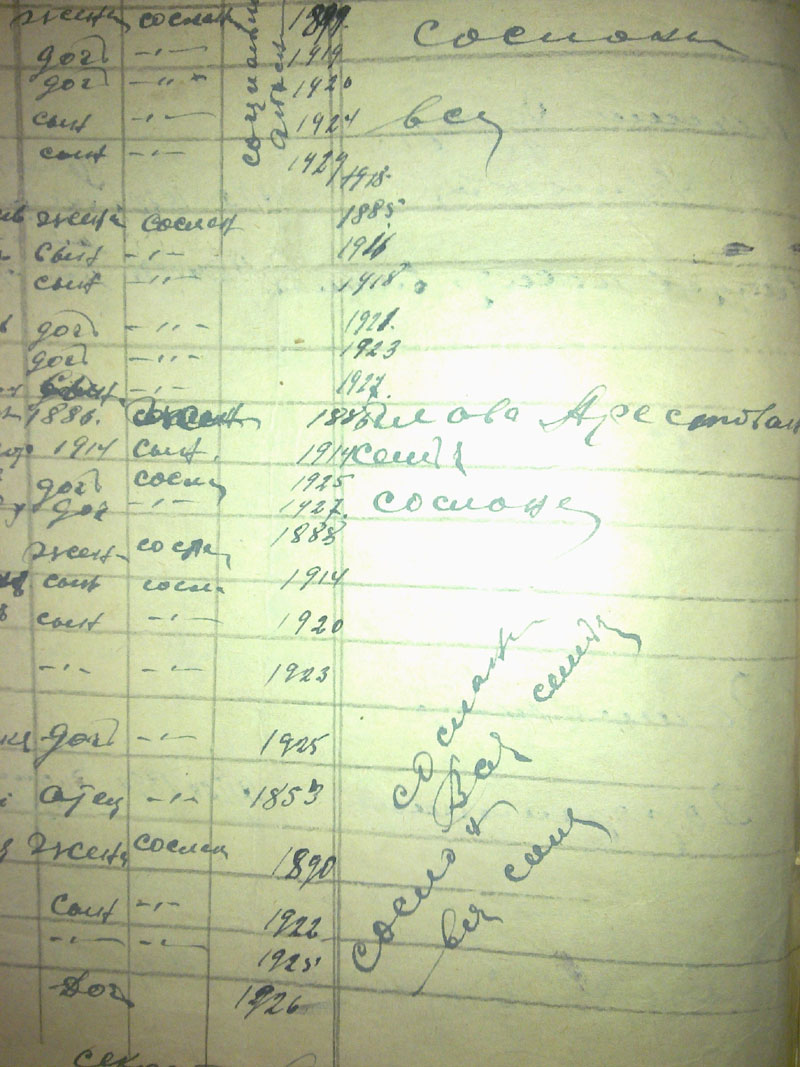 жена сослан 1899. сосланы
доч -"- 1919
доч -"- 1920
сын -"- 1924 всу
сын -"- 1929 1928
жена сослан 1885
сын -"- 1916
сын 1918
доч -"- 1921.
доч -"- 1923
сын -"- 1927.
1886. 1886 глава Арестован
1914 сын. 1914 семя
доч сослн 1925
доч -"- 1927. сослоне
1883
жена сослн
сын сосл. 1914
сын -"- 1920
-"- -"- 1923
доч -"- 1925
отец -"- 1853
жена сослан 1890
сын -"- 1922
-"- -"- 1925
доч 1926
сослан
Вся семя
сослон
вся семя
сек